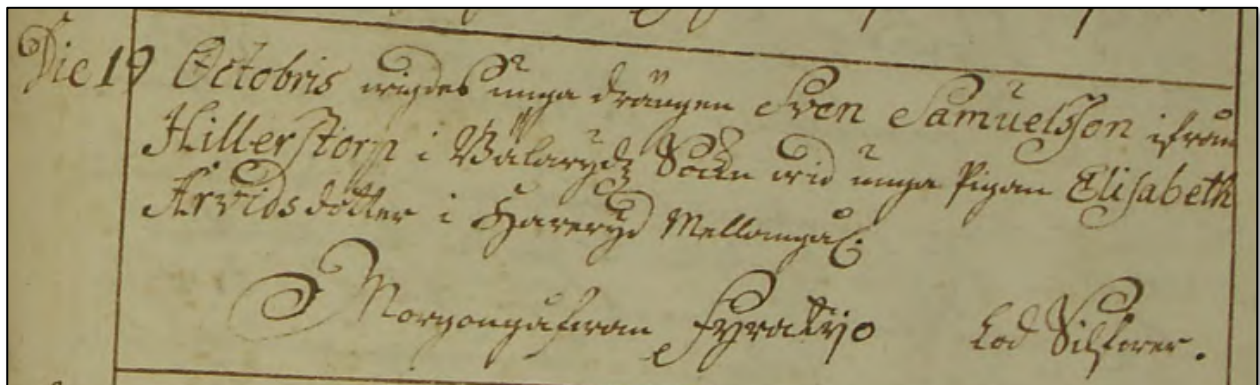 Die 19 Octobris wigdes unga drängen Sven Samuelsson ifrån
Hillerstorp i Wålarydz Sockn wid unga Pigan Elisabeth
Arvidsdotter i Hareryd Mellangål.
Morgongåfwan Fyratijo Lod Silfwer.